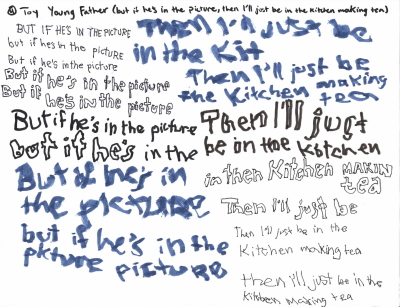 @ Toy Young Father (but if he's in the picture, then I'll just be in the Kitchen making tea)
BUT IF HE'S IN THE PICTURE
but if he's in the picture
But if he's in the picture
But if he's in the picture
But if he's in the picture
But if he's in the picture
but if he's in the
But if he's in
the picture
but if he's in the
picture picture
Then I'll just be
in the Kit
Then I'll just be
the Kitchen making
tea
Then I'll just
be in the Kitchen
in then Kitchen MAKIN
tea
Then I'll just be
Then I'll just be in the
Kitchen making tea
then i'll just be in the
Kitchen making tea